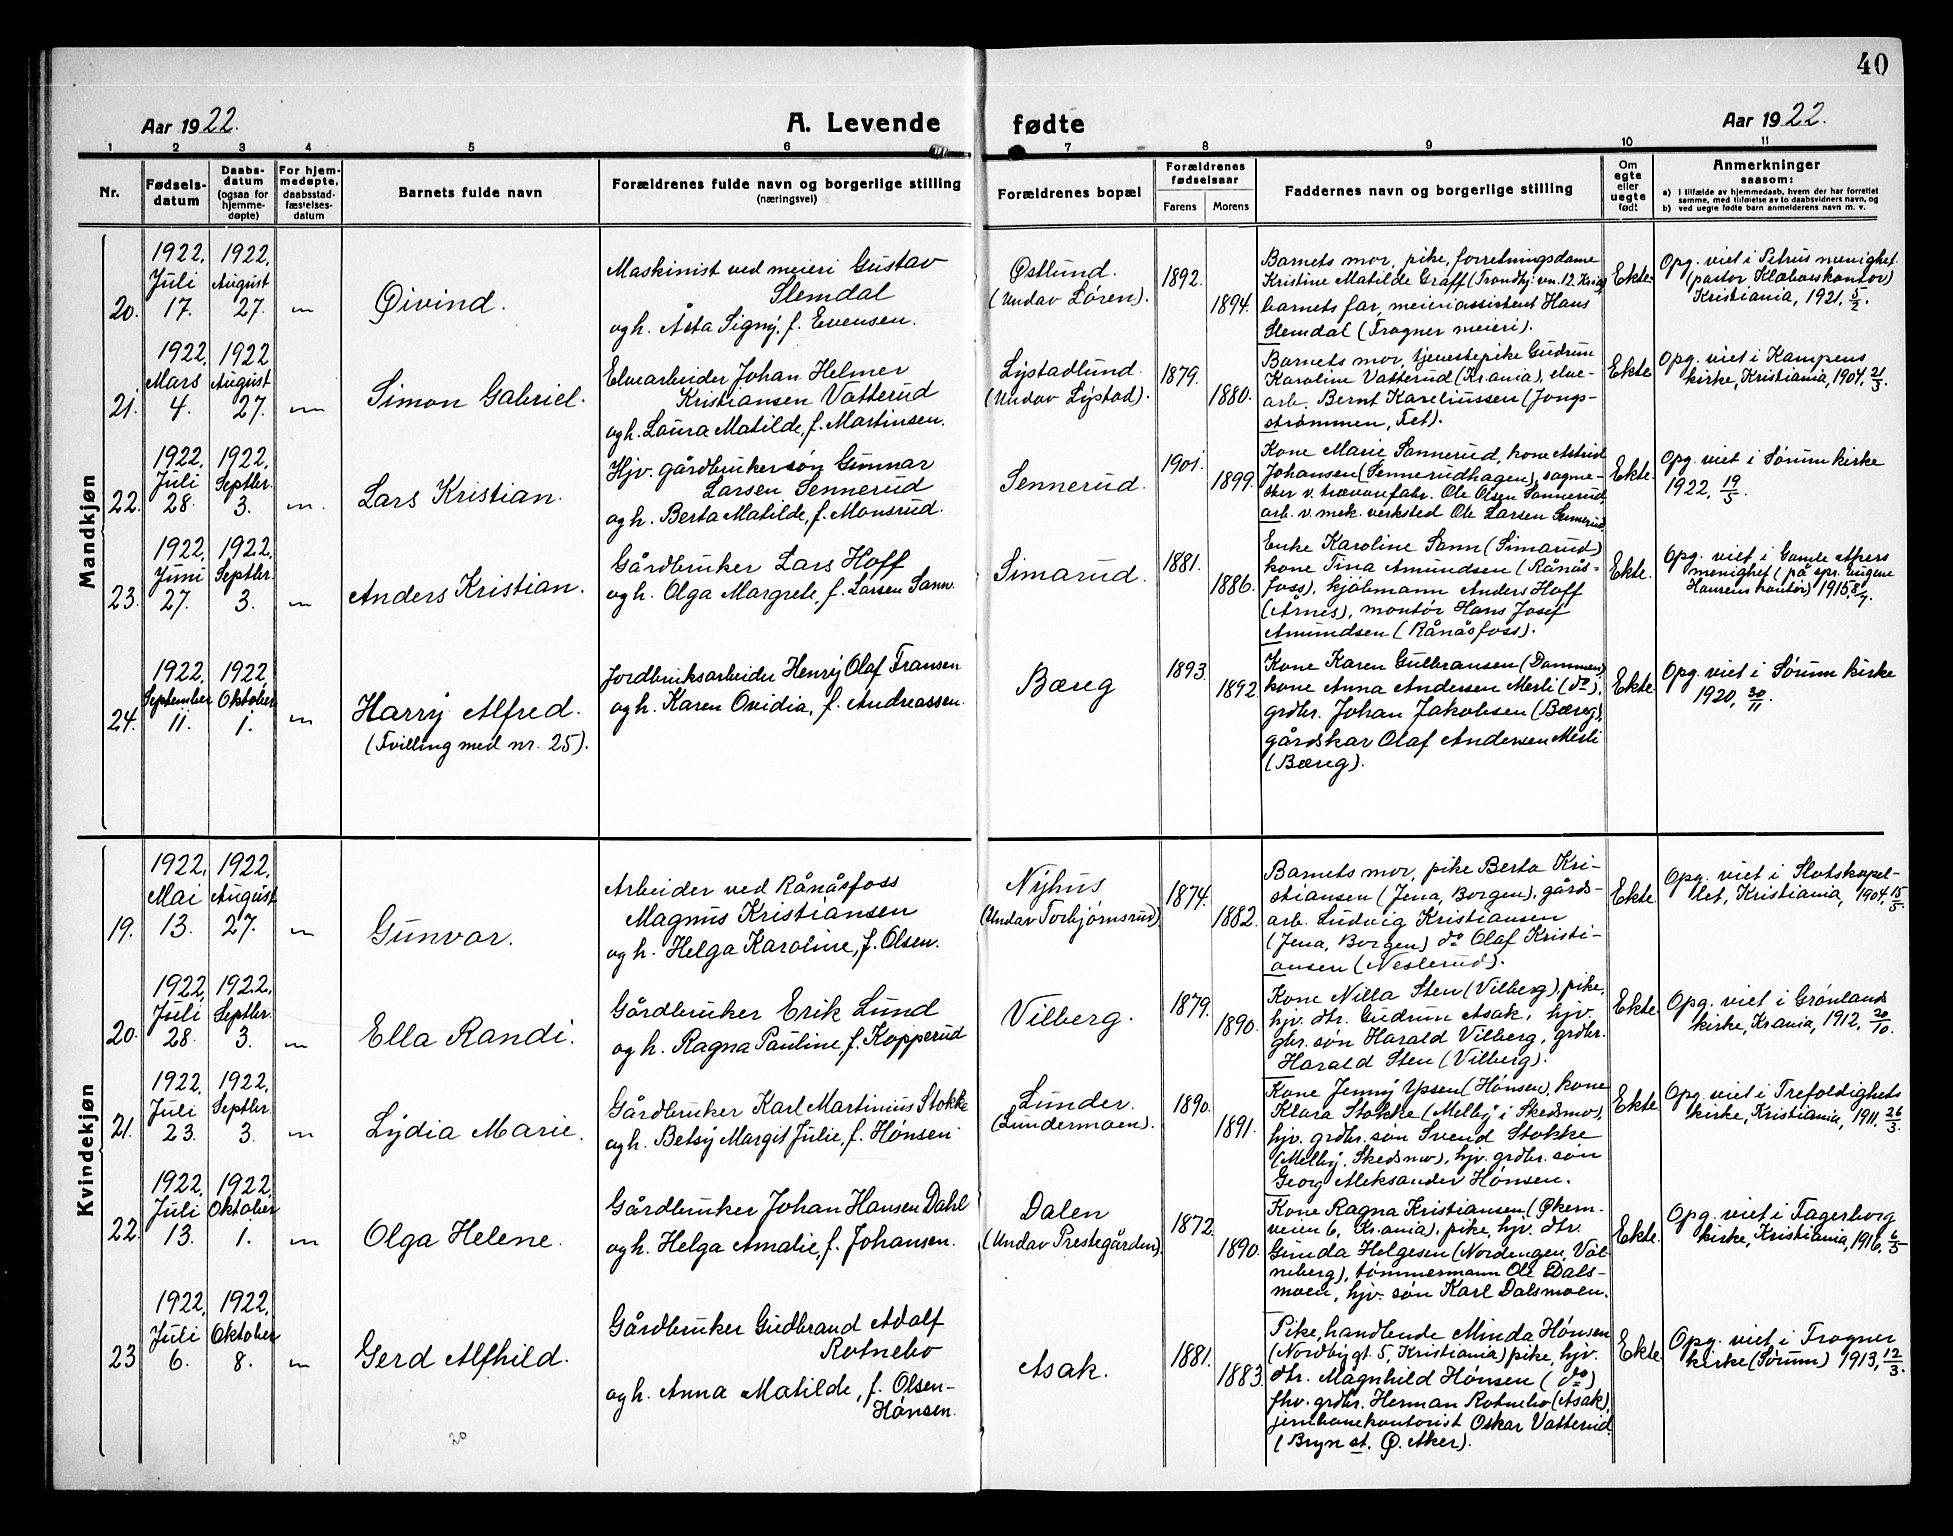 40
Aar 1922.
A. Levende
fødte
Aar 1922.
1 2 3 4 5 6 7 8 9 10 11
Nr.
Fødsels-
datum
Daabs-
datum
(ogsaa for
hjemme-
døpte)
For hjem-
medøpte,
daabsstad-
fæstelses-
datum
Barnets fulde navn
Forældrenes fulde navn og borgerlige stilling
(næringsvei)
Forældrenes bopæl
Forældrenes
fødselsaar
Farens
Morens
Faddernes navn og borgerlige stilling
Om
egte
eller
uegte
født
Anmerkninger
saasom:
a) i tilfælde av hjemmedaab, hvem der har forrettet
samme, med tilføielse av to daabsvidners navn, og
b) ved uegte fødte barn anmelderens navn m. v.
Mandkjøn
20.
1922.
Juli
17.
1922.
August
27.
"
Øivind.
Maskinist ved meieri Gustav
Slemdal
og h. Åsta Signy, f. Evensen.
Østlund.
(Undav Løren).
1892.
1894.
Barnets mor, pike, forretningsdame
Kristine Matilde Graff (Trondhj.vn. 12, Kr.a),
barnets far, meieriassistent Hans
Slemdal (Frogner meieri).
Ekte.
Opg. viet i Petrus menighet
(pastor Klævens kontor)
Kristiania, 1921, 5/2.
21.
1922.
Mars
4.
1922
August
27.
"
Simon Gabriel.
Elvearbeider Johan Helmer
Kristiansen Vatterud
og h. Laura Matilde, f. Martinsen.
Lystadlund.
(Undav Lystad).
1879.
1880.
Barnets mor, tjenestepike Gudrun
Karoline Vatterud (Kr.ania), elve-
arb. Bernt Kareliussen (Jongs-
strømmen, Fet).
Ekte
Opg. viet i Kampens
kirke, Kristiania, 1904, 21/3.
22.
1922.
Juli
28.
1922.
Septbr.
3.
"
Lars Kristian.
Hjv. gårdbrukersøn Gunnar
Larsen Sennerud
og h. Berta Matilde, f. Monsrud.
Sennerud.
1901.
1899.
Kone Marie Sannerud, kone Astrid
Johansen (Sennerudhagen), sagme-
ster v. trævarefabr. Ole Olsen Sannerud,
arb. v. mek. verksted Ole Larsen Sennerud.
Ekte.
Opg. viet i Sørum kirke
1922, 19/5.
23.
1922.
Juni
27.
1922.
Septbr.
3.
"
Anders Kristian.
Gårdbruker Lars Hoff
og h. Olga Margrete, f. Larsen Sann.
Simarud.
1881.
1886.
Enke Karoline Sann (Simarud)
kone Tina Amundsen (Rånås-
foss), kjøbmann Anders Hoff
(Årnes), montør Hans Josef
Amundsen (Rånåsfoss).
Ekte.
Opg. viet i Gamle Akers
menighet (på spr. Eugene
Hansens kontor) 1915, 8/7.
24.
1922.
September
11.
1922.
Oktober
1.
"
Harry Alfred.
(Tvilling med nr. 25).
Jordbruksarbeider Henry Olaf Fransen
og h. Karen Ovidia, f. Andreassen.
Bæreg
1893.
1892.
Kone Karen Gulbransen (Dammen),
kone Anna Andersen Merli (do),
grdbr. Johan Jakobsen (Bæreg),
gårdskar Olaf Andersen Merli
(Bæreg).
Ekte.
Opg. viet i Sørum kirke
1920, 30/11.
Kvindekjøn
19.
1922.
Mai
13.
1922.
August
27.
"
Gunvor.
Arbeider ved Rånåsfoss
Magnus Kristiansen
og h. Helga Karoline, f. Olsen.
Nyhus
(Undav Torbjørnsrud).
1874.
1882.
Barnets mor, pike Berta Kri-
stiansen (Jena, Borgen), gårds-
arb. Ludvig Kristiansen
(Jena, Borgen) do Olaf Kristi-
ansen (Neslerud).
Ekte.
Opg. viet i Slotskapel-
let, Kristiania, 1904, 15/5.
20.
1922.
Juli
28.
1922.
Septbr.
3.
"
Ella Randi.
Gårdbruker Erik Lund
og h. Ragna Pauline, f. Kopperud
Vilberg.
1879.
1890.
Kone Nilla Sten (Vilberg), pike,
hjv. dtr. Gudrun Asak, hjv.
gbr. søn Harald Vilberg, grdbr.
Harald Sten (Vilberg).
Ekte.
Opg. viet i Grønlands
kirke, Kr.ania, 1912, 20/10.
21.
1922.
Juli
23.
1922.
Septbr.
3.
"
Lydia Marie.
Gårdbruker Karl Martinius Stokke
og h. Betsy Margit Julie, f. Hønsen.
Lunder.
(Lundermoen).
1890.
1891.
Kone Jenny Ypsen (Hønsen), kone
Klara Stokke (Melby i Skedsmo),
hjv. grdbr. søn Svend Stokke
(Melby, Skedsmo), hjv. grdbr. søn
Georg Aleksander Hønsen.
Ekte.
Opg. viet i Trefoldighets
kirke, Kristiania, 1911, 26/3.
22.
1922.
Juli
13.
1922.
Oktober
1.
"
Olga Helene.
Gårdbruker Johan Hansen Dahl
og h. Helga Amalie, f. Johansen.
Dalen
(Undav Prestegården).
1872.
1890.
Kone Ragna Kristiansen (Økern-
veien 6, Kr.ania), pike, hjv. dtr.
Gunda Helgesen (Nordengen, Vål-
neberg), tømmermann Ole Dals-
moen, hjv. søn Karl Dalsmoen.
Ekte.
Opg. viet i Fagerborg
kirke, Kristiania, 1916, 6/5
23
1922.
Juli
6.
1922.
Oktober
8.
"
Gerd Alfhild.
Gårdbruker Gudbrand Adolf
Rotnebo
og h. Anna Matilde, f. Olsen-
Hønsen.
Asak.
1881.
1883.
Pike, handlende Minda Hønsen
(Nordbygt. 5, Kristiania) pike, hjv.
dtr. Magnhild Hønsen (do)
fhv. grdbr. Herman Rotnebo (Asak),
jernbanekontorist Oskar Vatterud
(Bryn st. Ø. Aker).
Ekte.
Opg. viet i Frogner
kirke (Sørum) 1913, 12/3.
20